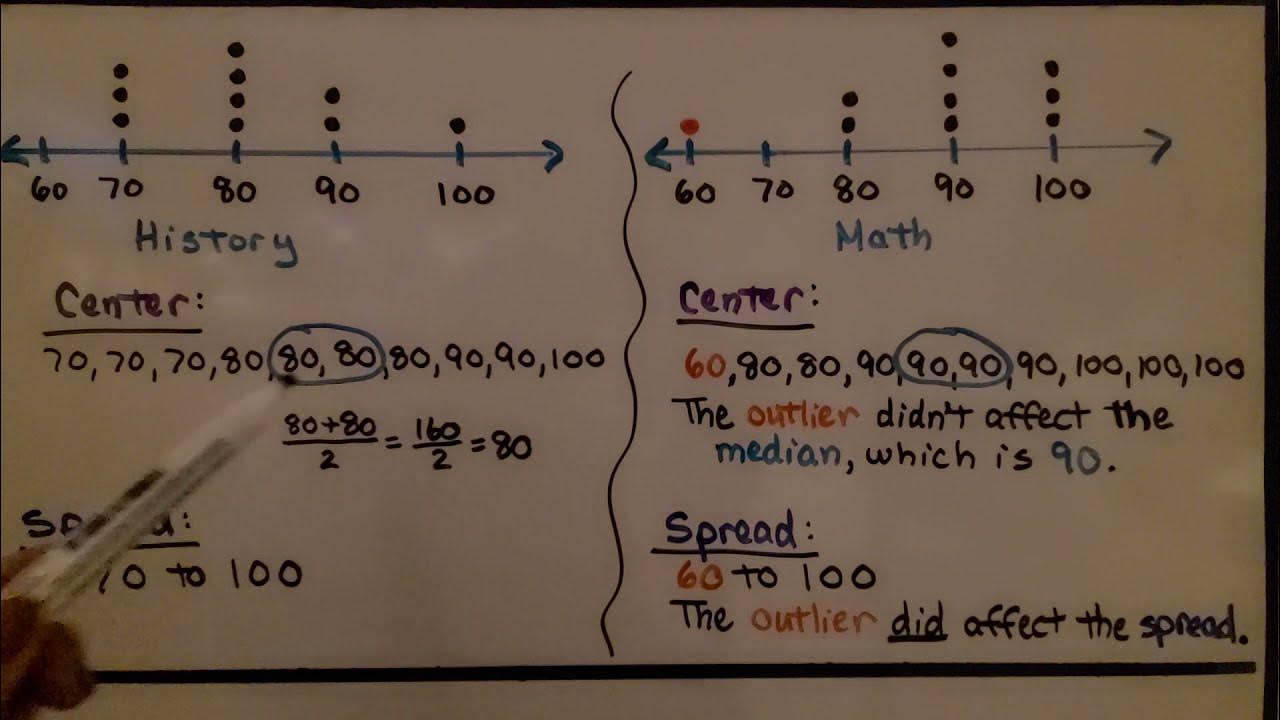 60 70 80 90 100
History
Center:
70, 70, 70, 80, 80, 80, 80, 90, 90, 100
80+80/2 = 160/2 = 80
70 to 100
60 70 80 90 100
Math
Center:
60, 80, 80, 90, 90, 90, 90, 100, 100, 100
The outlier didn't affect the
median, which is 90.
Spread:
60 to 100
The outlier did affect the spread.